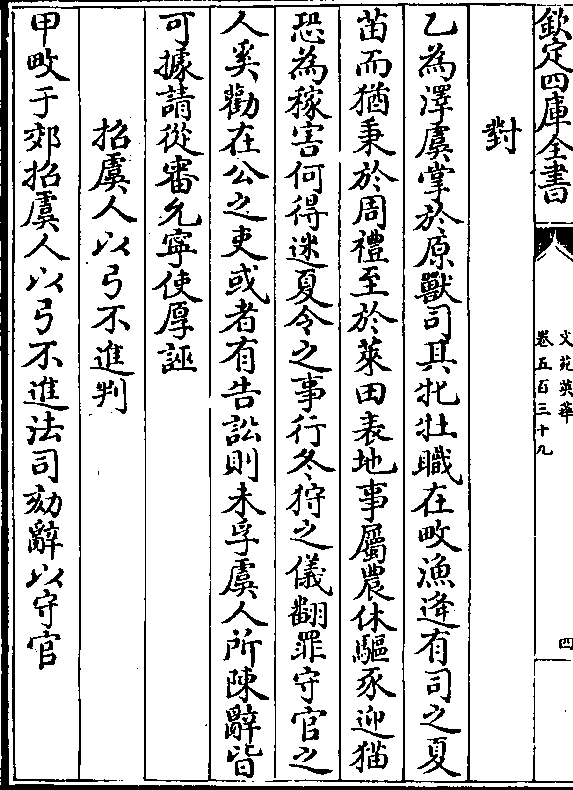 欽定四庫全書
文苑英華
卷五百三十九
四
對
乙為澤虞掌於原獸司其牝牡職在畋漁逄有司之夏
苗而猶秉於周禮至於萊田表地事屬農休驅豕迎猫
恐為稼害何得迷夏令之事行冬狩之儀翻罪守官之
人奚勸在公之吏或者有告訟則未孚虞人所陳辭皆
可據請從審允寜使厚誣
招虞人以弓不進判
甲畋于郊招虞人以弓不進法司劾辭以守官